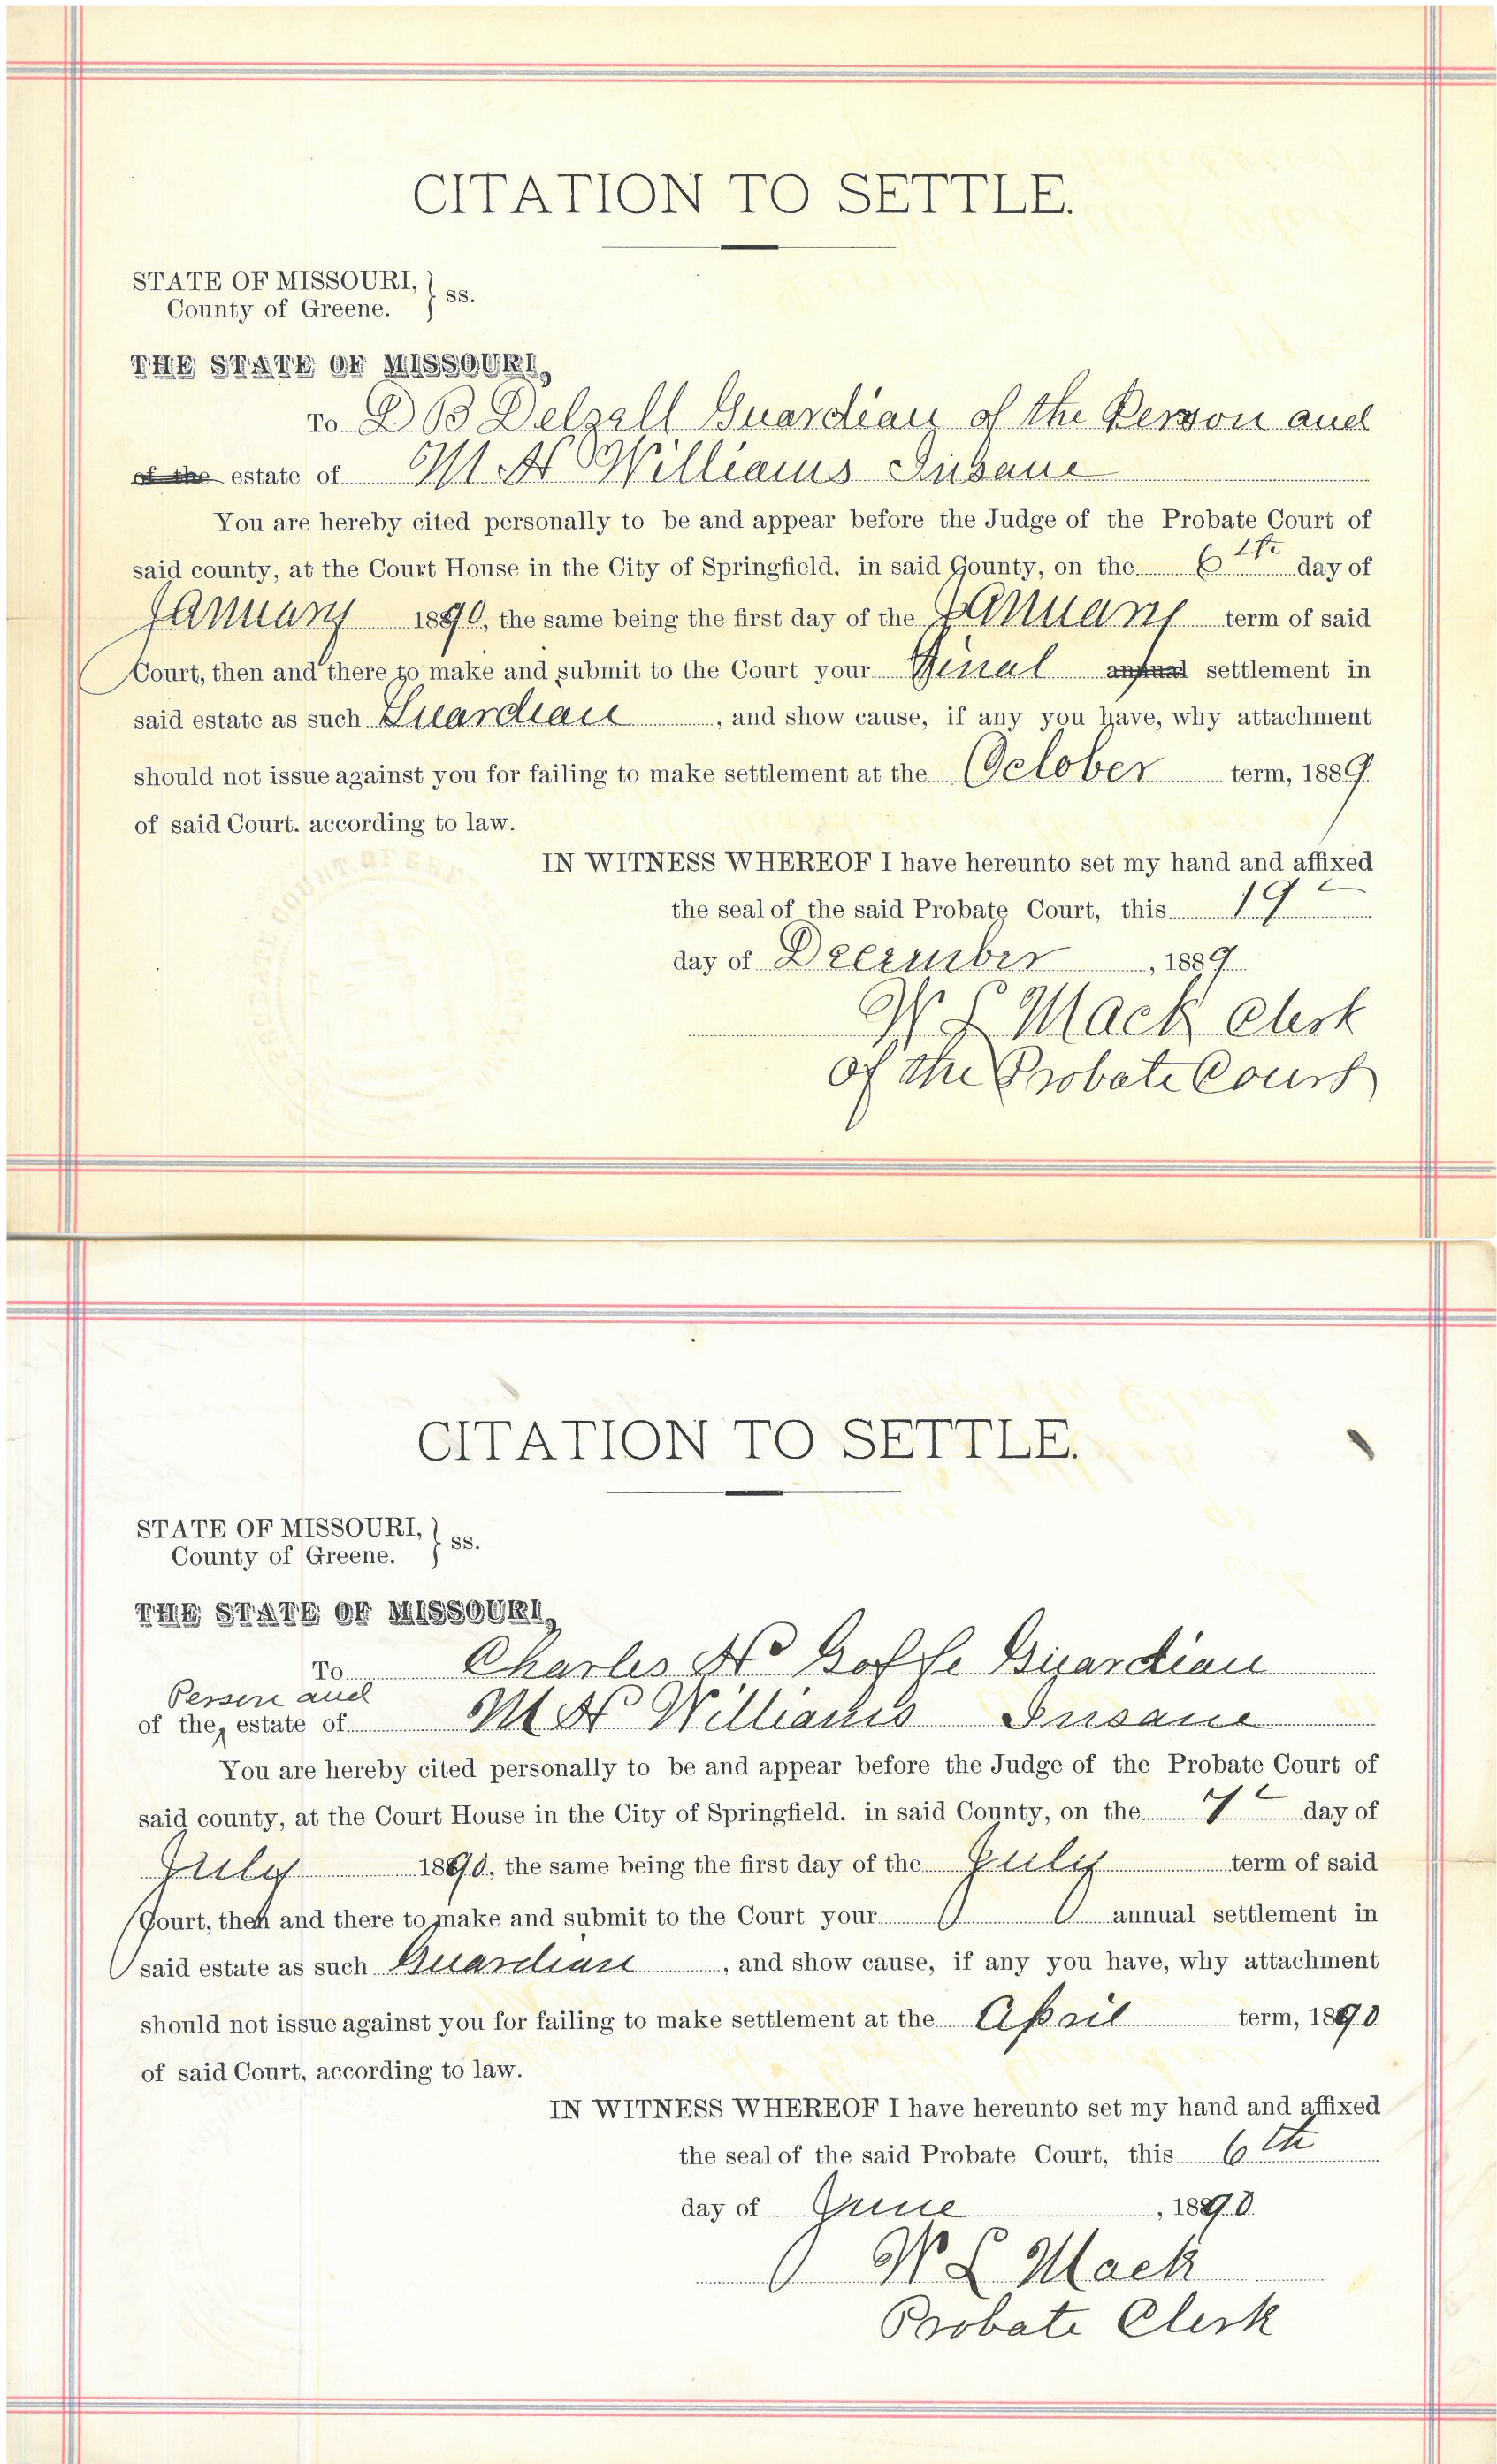 CITATION TO SETTLE.
STATE OF MISSOURI, } ss.
County of Greene.
THE STATE OF MISSOURI,
To D B Delzell Guardian of the Person and
of the estate of M H Williams Insane
You are hereby cited personally to be and appear before the Judge of the Probate Court of
said county, at the Court House in the City of Springfield, in said County, on the 6th day of
January 1890, the same being the first day of the January term of said
Court, then and there to make and submit to the Court your Final annual settlement in
said estate as such Guardian, and show cause, if any you have, why attachment
should not issue against you for failing to make settlement at the October term, 1889
of said Court. according to law.
IN WITNESS WHEREOF I have hereunto set my hand and affixed
the seal of the said Probate Court, this 19
day of December, 1889
W L Mack Clerk
of the Probate Court
CITATION TO SETTLE.
STATE OF MISSOURI, } ss.
County of Greene.
THE STATE OF MISSOURI,
To Charles H Goffe Guardian
Person and
of the, estate of M H Williams Insane
You are hereby cited personally to be and appear before the Judge of the Probate Court of
said county, at the Court House in the City of Springfield, in said County, on the 7 day of
July 1890, the same being the first day of the July term of said
Court, then and there to make and submit to the Court your annual settlement in
said estate as such Guardian, and show cause, if any you have, why attachment
should not issue against you for failing to make settlement at the April term, 1890
of said Court, according to law.
IN WITNESS WHEREOF I have hereunto set my hand and affixed
the seal of the said Probate Court, this 6th
day of June, 1890
W L Mack
Probate Clerk